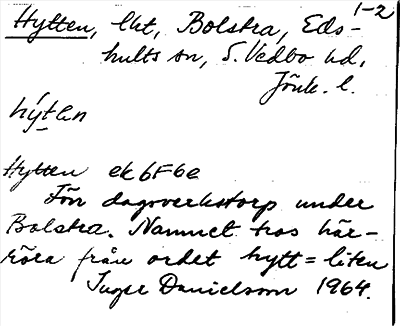 1-2
Hytten, lht, Bolstra, Eds-
hults sn, S. Vedbo hd,
Jönk. l.
hýtən
Hytten ek 6F6e
Förr dagsverkstorp under
Bolstra. Namnet tros här-
röra från ordet hytt = liten
Inger Danielsson 1964.